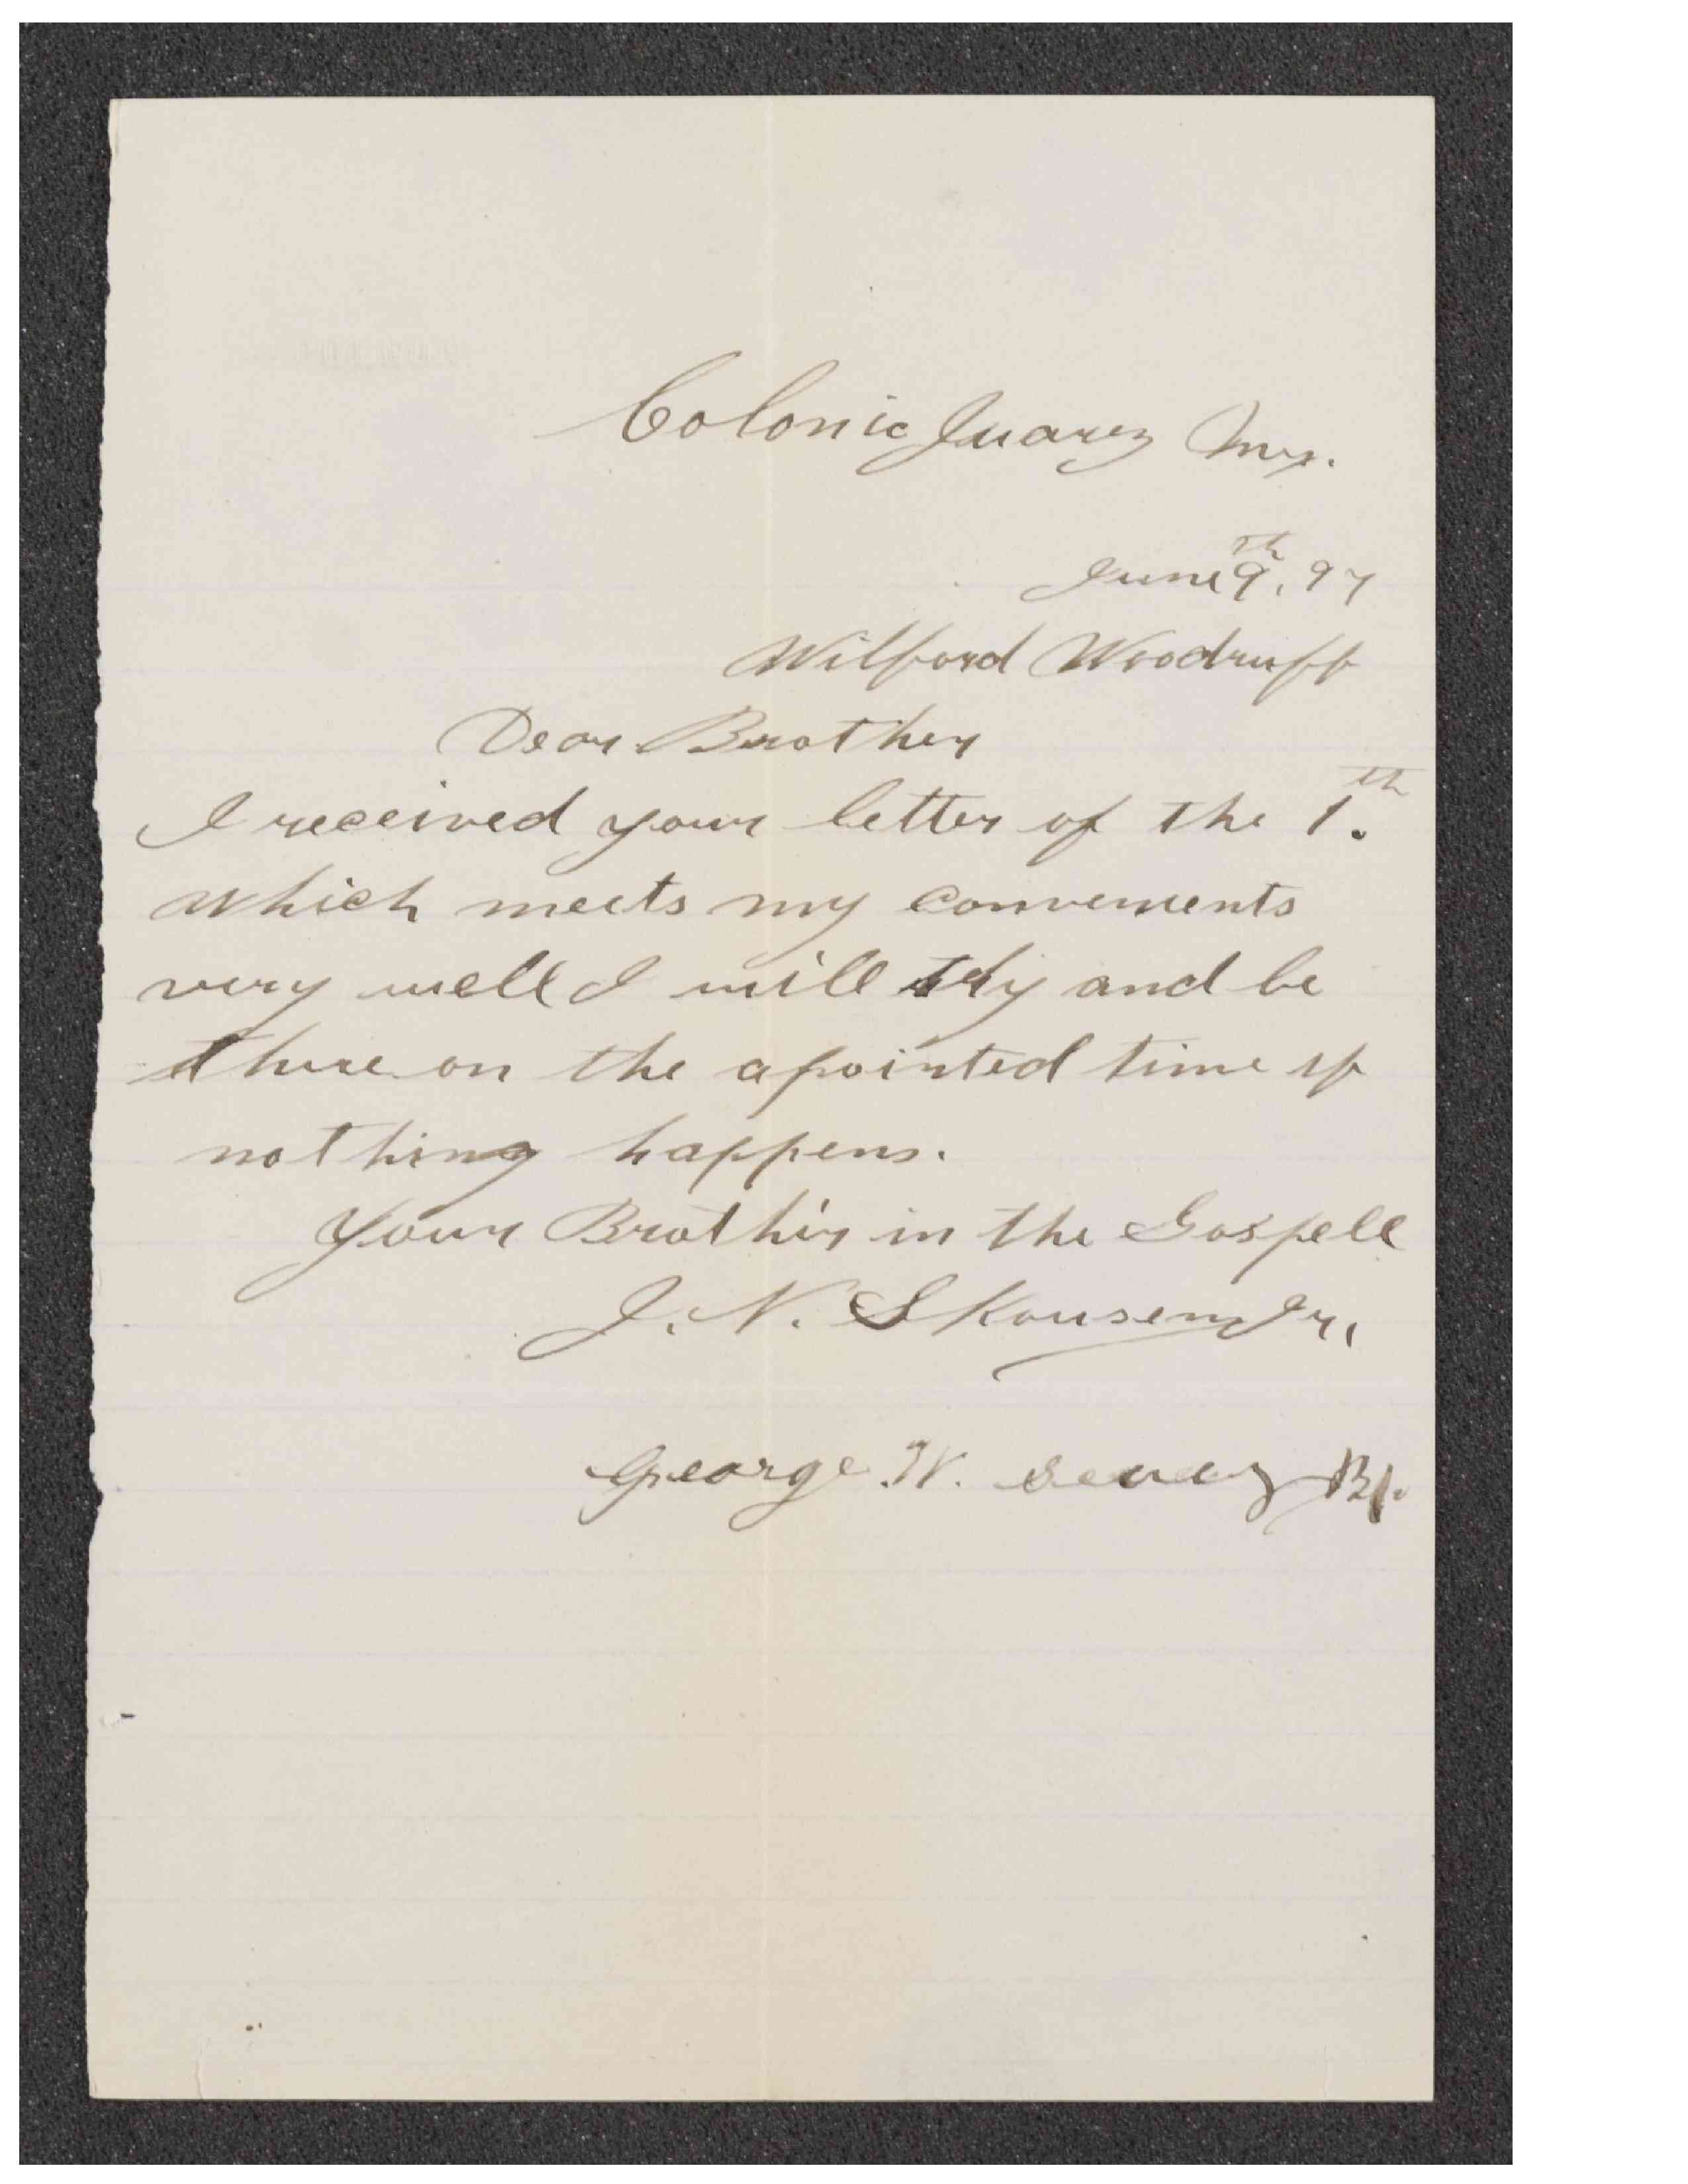 Colonia Juarez Mex.
June 9th, 97
Wilford Woodruff
Dear Brother
I received your letter of the 1.th
which meets my convenients
very well I will try and be
there on the apointed time if
nothing happens.
Your Brother in the Gospell
J. N. Skousen Jr.
George W. Sevey Bp.